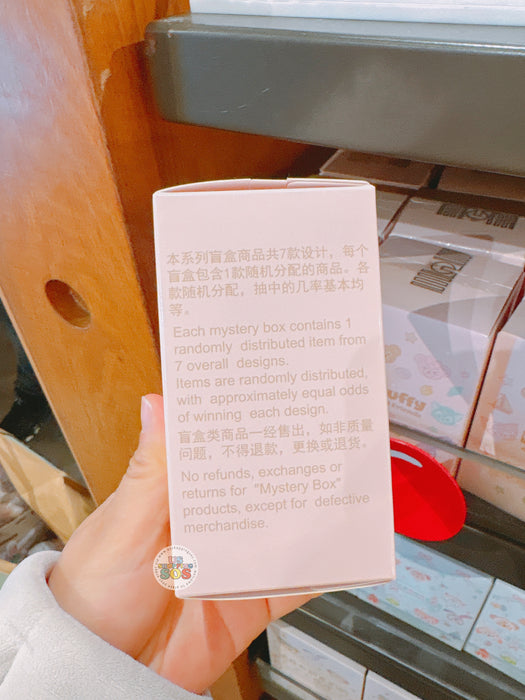 本系列盲盒商品共7款设计，每个
盲盒包含1款随机分配的商品。各
款随机分配，抽中的几率基本均
等。
Each mystery box contains 1
randomly distributed item from
7 overall designs.
Items are randomly distributed,
with approximately equal odds
of winning each design.
盲盒类商品一经售出，如非质量
问题，不得退款，更换或退货。
No refunds, exchanges or
returns for "Mystery Box"
products, except for defective
merchandise.